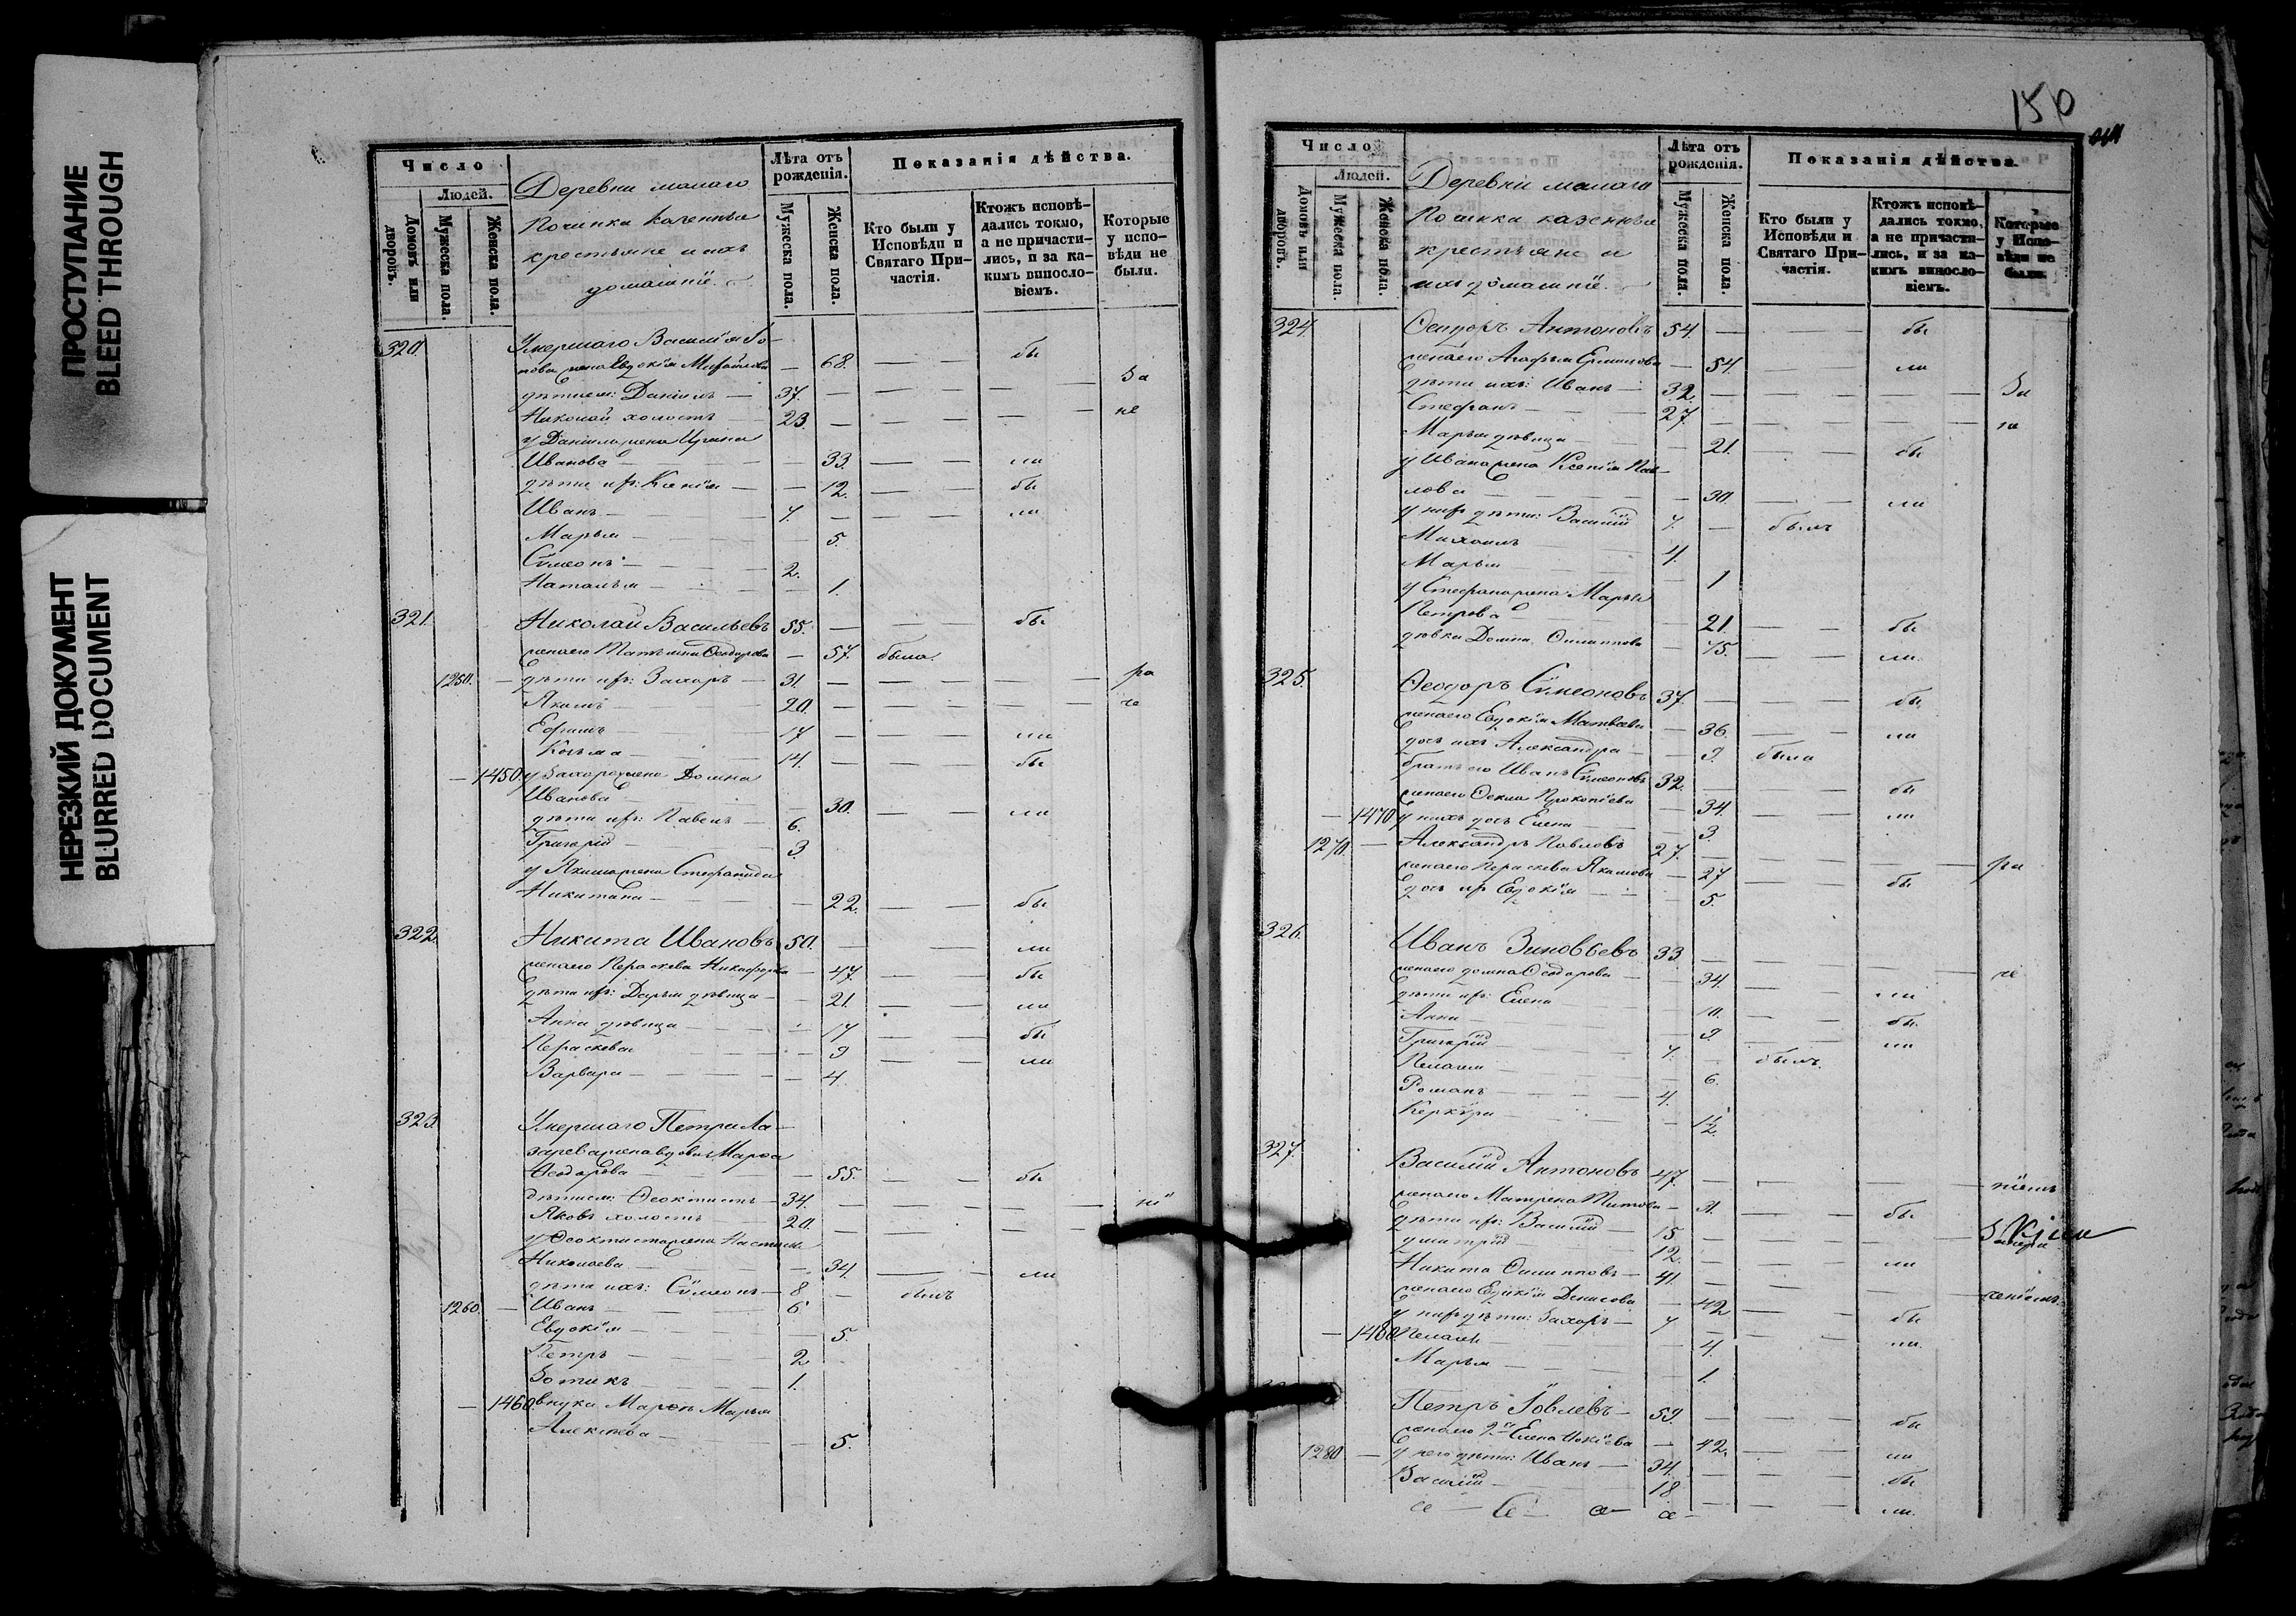 ПРОСТУПАНИЕ
BLEED THROUGH
НЕРЕЗКИЙ ДОКУМЕНТ
BLURRED DOCUMENT
Число
Людей.
Домовъ или дворовъ.
Мужеска пола.
Женска пола.
Деревни малаго
Починка казенные
крестьяне и ихъ
домашнiе.
Лѣта отъ рожденiя.
Мужеска пола.
Женска пола.
Показанiя дѣйства.
Кто были у Исповѣди и Святаго Причастiя.
Ктожъ исповѣдались токмо, а не причастились, и за какимъ винословiемъ.
Которые у исповѣди не были.
320. Умершаго Василiя
жена Евдокiя — 68. — — бы
дѣти ея: Данiилъ — 37. — — — за
Николай холостъ 23. — — — не
у Данiила жена Ирина
Иванова — — 33. — — ли
дѣти их: Ксенiя — — 12. — — бы
Иванъ — 7. — — — ли
Марья — — 5.
Сѵмеонъ — 2.
Наталья — — 1.
321. Николай Васильевъ 55. — — — бы
жена его Татьяна Феодорова — 57. была.
1250. — дѣти их: Захаръ — 31. — — — — ра
Якимъ — 20. — — — — че
Ефимъ — 17 — — — ли
Козьма — 14. — — — бы
— 1450. у Захара жена Домна
Иванова — — 30. — — ли
дѣти их: Павелъ — 6.
Григорiй — 3.
у Якима жена Стефанида
Никитина — — 22. — — бы
322. Никита Ивановъ 50. — — — ли
жена его Параскева Никифорова — 47. — — бы
дѣти их: Дарья дѣвица — — 21. — — ли
Анна дѣвица — — 17 — — бы
Параскева — — 9 — — ли
Варвара — — 4.
323. Умершаго Петра Ла-
зарева жена вдова Марѳа
Феодорова — — 55. — — бы
дѣти ея: Феоктистъ — 34. — — — —
Яковъ холостъ — 20. — — —
у Феоктиста жена Настасья
Николаева — — 34. — — ли
дѣти ихъ: Сѵмеонъ — 8 — былъ
1260. — Иванъ — 6
Евдокiя — — 5.
Петръ 2
Зотикъ 1.
— 1460. внука Марѳы Марья
Алексѣева — — 5.
150
Число
Людей.
Домовъ или дворовъ.
Мужеска пола.
Женска пола.
Деревни малаго
Починка казенные
крестьяне и
ихъ домашнiе.
Лѣта отъ рожденiя.
Мужеска пола.
Женска пола.
Показанiя дѣйства.
Кто были у Исповѣди и Святаго Причастiя.
Ктожъ исповѣдались токмо, а не причастились, и за какимъ винословiемъ.
Которые у Исповѣди не были.
324. Феодоръ Антоновъ 54. — — — бы
жена его Агафья — 54. — — ли
дѣти ихъ: Иванъ — 32. — — — —
Стефанъ — 27. — — — —
Марья дѣвица — — 21. — — бы
у Ивана жена Ксенiя Пав-
лова — — 30. — — ли
у них дѣти: Василiй 7. — былъ
Михаилъ 4.
Марья — — 1
у Стефана жена Марья
Петрова — — 21. — — бы
дѣвка Домна Филиппова — 75. — — ли.
325. Феодоръ Сѵмеоновъ 37. — — — бы
жена его Евдокiя Матвѣева — 36. — — ли
дочь ихъ Александра — — 9. была
братъ его Иванъ Сѵмеоновъ 32. — — — бы
жена его Фекла Прокопiева — 34. — — ли
— 1470 у нихъ дочь Елена — — 3.
1270. — Александръ Павловъ 27. — — — — ра
жена его Параскева Якимова — 27 — — бы
дочь их Евдокiя — — 5.
326. Иванъ Зиновьевъ 33. — — — — че
жена его Домна Феодорова — 34. — — ли
дѣти их: Елена — — 10. — — бы.
Анна — — 9. — — ли
Григорiй 7. — былъ.
Пелагея — — 6.
Романъ 4.
— — 1/2.
327. Василiй Антоновъ 47. — — — —
жена его Матрена Титова — — — бы
дѣти их: Василiй 15 — — — —
Дмитрiй 12. — — — ли
Никита Филипповъ — 41. — — — — ченiемъ.
жена его Евдокiя Денисова — 42 — — бы
у них дѣти: Захаръ — 7 — — — ли.
— 1480. Пелагея — — 4.
Марья — — 1.
Петръ Iовлевъ — 59. — — — бы
жена его 2я Елена — 42. — — ли
1280 — у него дѣти: Иванъ — 34. — — — бы
Василiй 18. — — — ли.